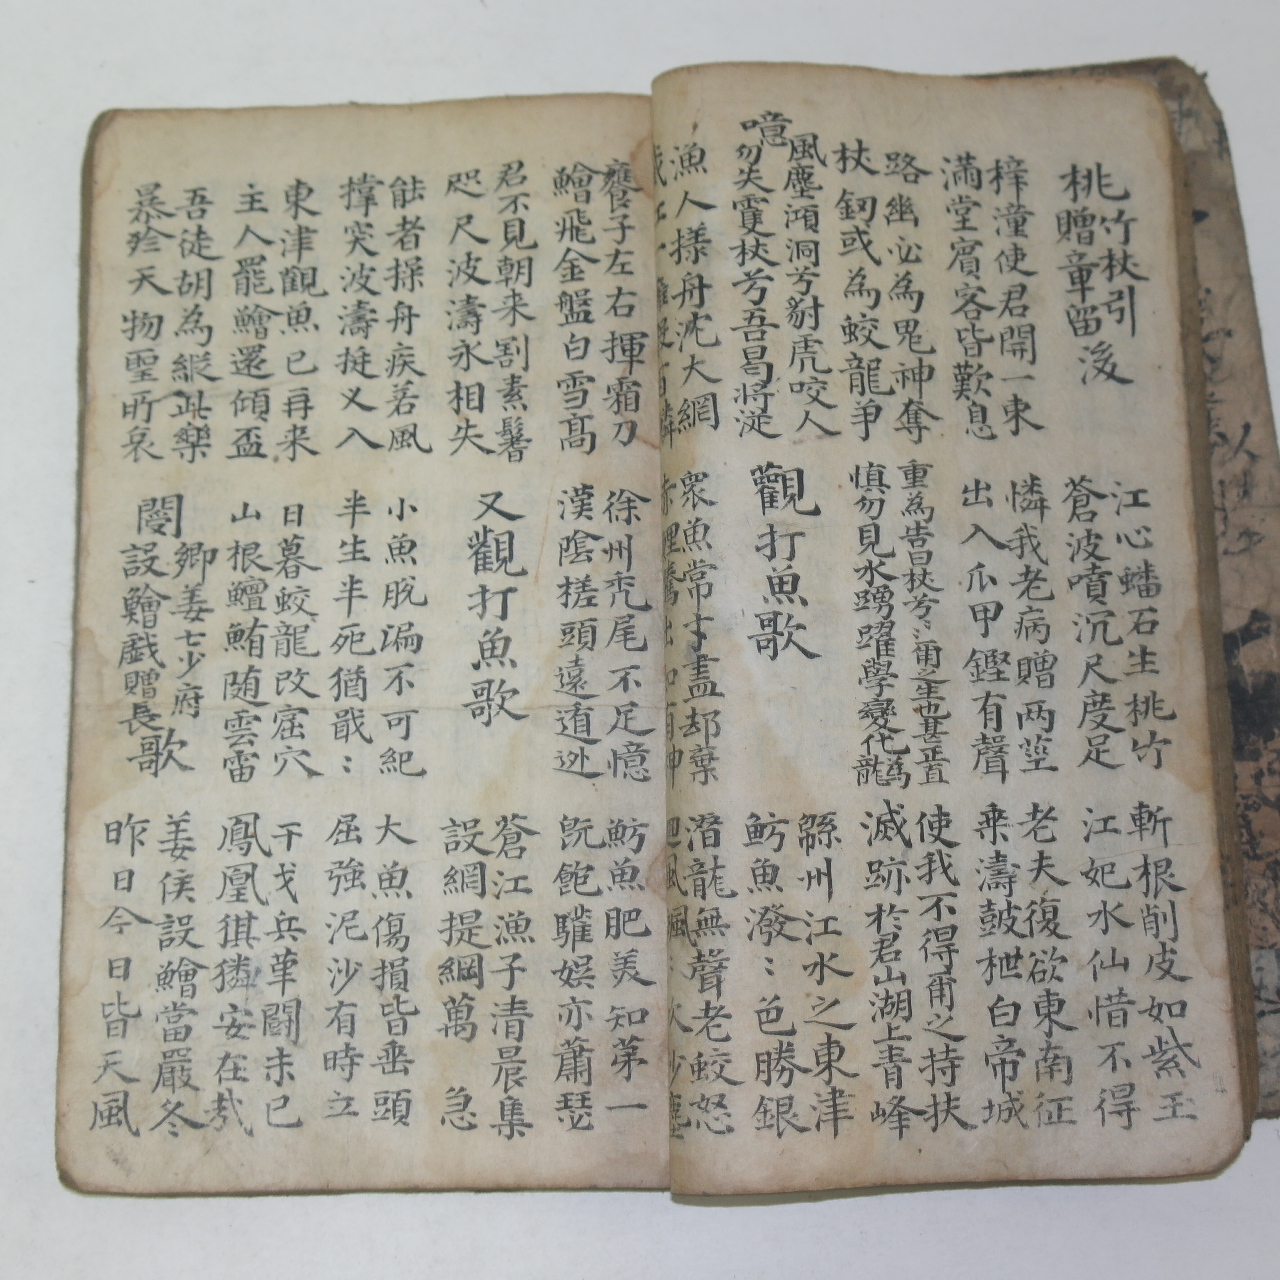 桃竹杖引
贈章留後
江心蟠石生桃竹
蒼波噴沉尺度足
斬根削皮如紫玉
江妃水仙惜不得
梓潼使君開一束
滿堂賓客皆歎息
憐我老病贈兩莖
出入爪甲鏗有聲
老夫復欲東南征
乘濤鼓枻白帝城
路幽必為鬼神奪
杖釰或為蛟龍爭
重為告曰杖兮:爾之生也甚正直
慎勿見水踴躍學變化為龍
使我不得爾之持扶
滅跡於君山湖上青峰
噫風塵澒洞兮豺虎咬人
勿失雙杖兮吾曷將從
觀打魚歌
緜州江水之東津
魴魚潑:色勝銀
漁人樣舟沈大網
眾魚常才盡却棄
潛龍無聲老蛟怒
饔子左右揮霜刀
鱠飛金盤白雪高
徐州禿尾不足憶
漢陰槎頭遠遁逃
魴魚肥美知第一
既飽驩娱亦蕭瑟
君不見朝来割素鬐
咫尺波濤永相失
又觀打魚歌
蒼江漁子清晨集
設網提綱萬 急
能者操舟疾若風
撑突波濤挺叉入
小魚脫漏不可紀
半生半死猶戢:
大魚傷損皆垂頭
屈強泥沙有時立
東津觀魚已再来
主人罷鱠還傾盃
日暮蛟龍改窟穴
山根鱣鮪随雲雷
干戈兵革鬪未已
鳳凰猉獜安在㢤
吾徒胡為縱此樂
暴殄天物聖所哀
閿鄉姜七少府
設鱠戲贈長歌
姜侯設鱠當嚴冬
昨日今日皆天風